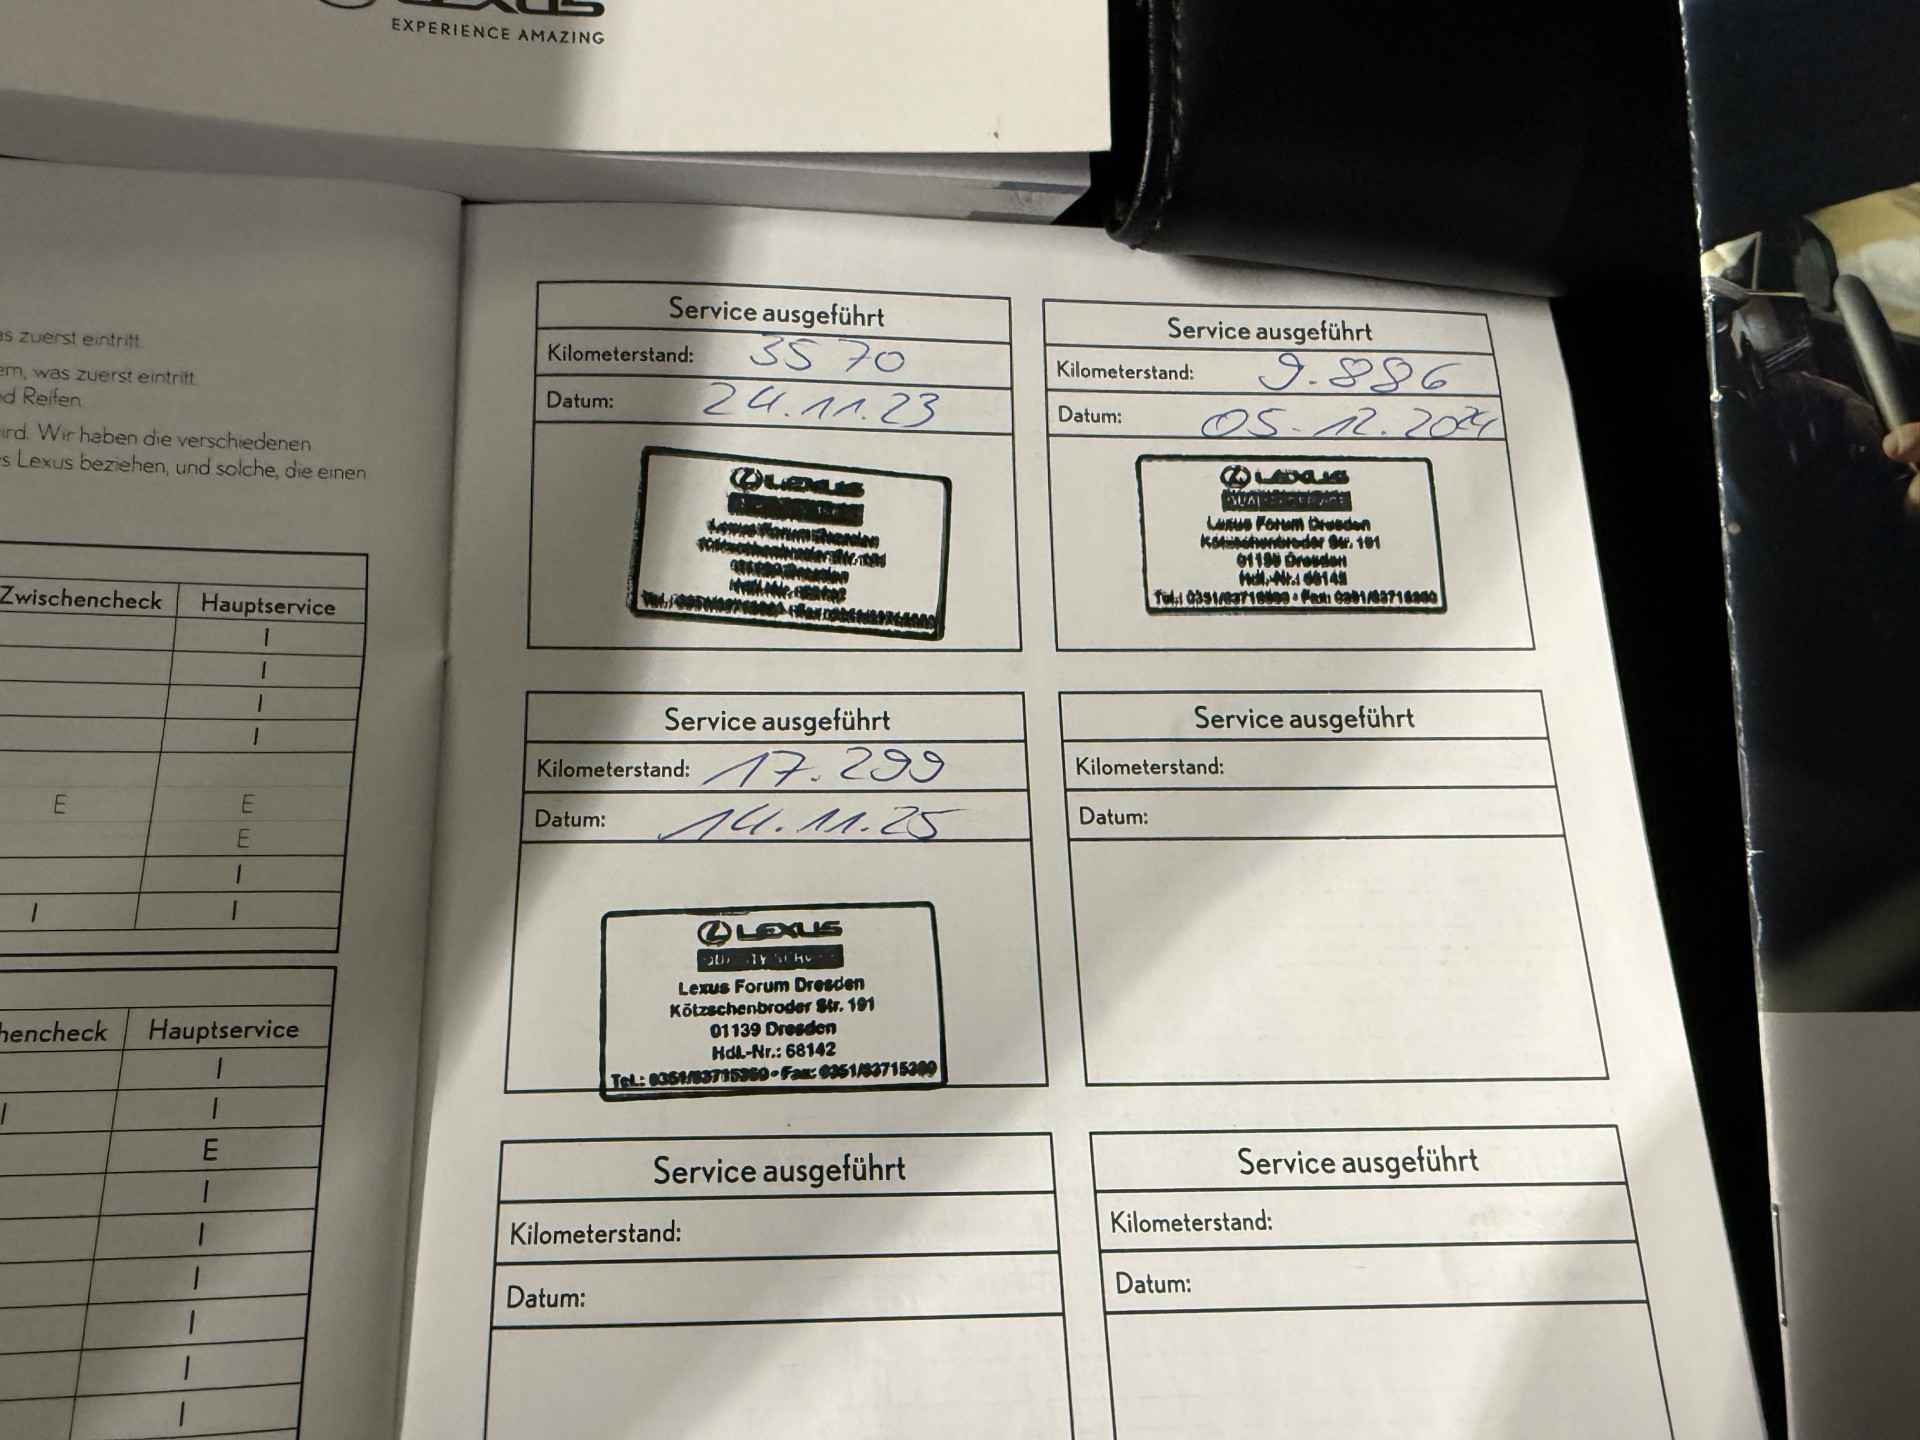 LEXUS
EXPERIENCE AMAZING
as zuerst eintritt.
ern, was zuerst eintritt.
d Reifen
ird. Wir haben die verschiedenen
s Lexus beziehen, und solche, die einen
Zwischencheck Hauptservice
I
I
I
I
E E
E
I
I I
hencheck Hauptservice
I
I I
E
I
I
I
I
I
I
Service ausgeführt
Kilometerstand: 3570
Datum: 24.11.23
LEXUS
Lexus Forum Dresden
Kötzschenbroder Str. 191
Service ausgeführt
Kilometerstand: 9.886
Datum: 05.12.2024
LEXUS
Lexus Forum Dresden
Kötzschenbroder Str. 191
01139 Dresden
Hdl.-Nr.: 68142
Service ausgeführt
Kilometerstand: 17.299
Datum: 14.11.25
LEXUS
Lexus Forum Dresden
Kötzschenbroder Str. 191
01139 Dresden
Hdl.-Nr.: 68142
Service ausgeführt
Kilometerstand:
Datum:
Service ausgeführt
Kilometerstand:
Datum:
Service ausgeführt
Kilometerstand:
Datum: